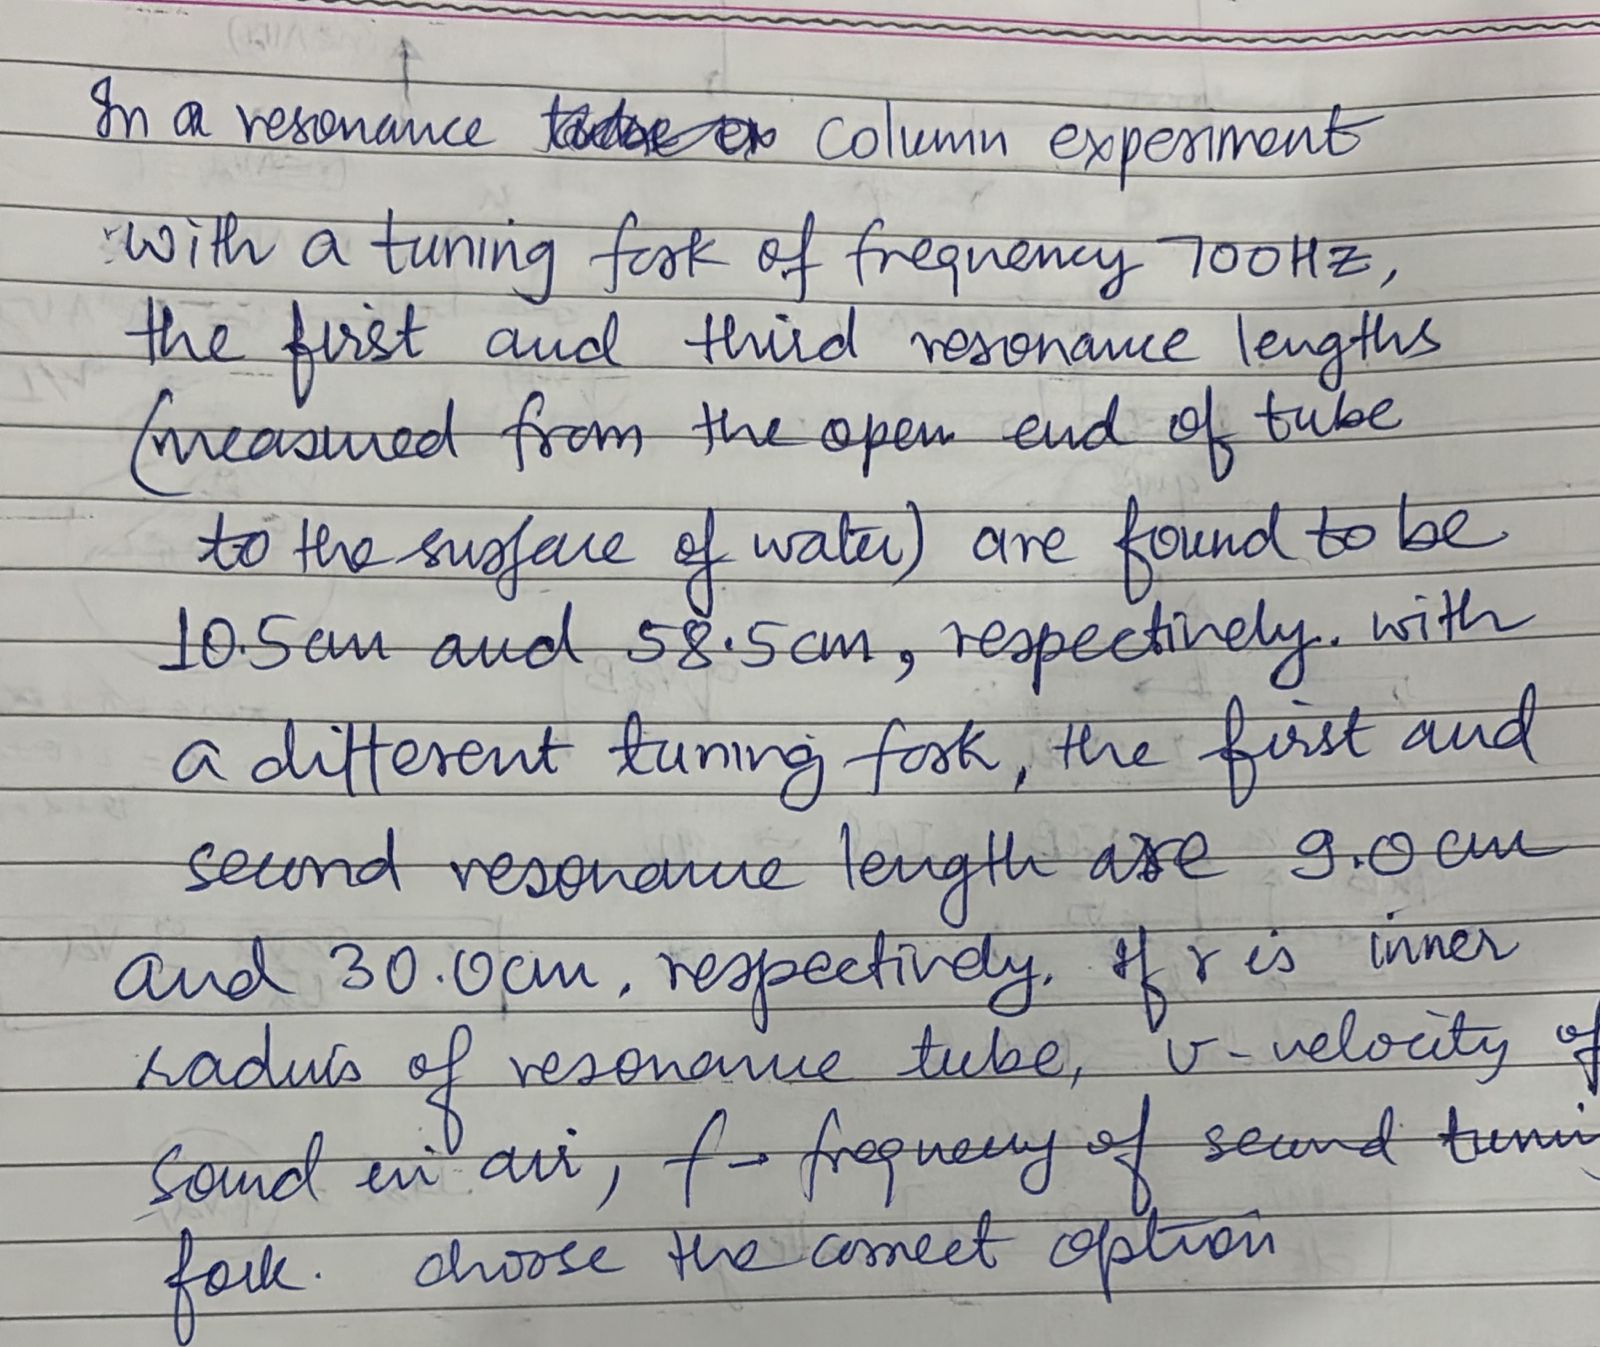 In a resonance column experiment
with a tuning fork of frequency 700Hz,
the first and third resonance lengths
(measured from the open end of tube
to the surface of water) are found to be
10.5cm and 58.5cm, respectively. with
a different tuning fork, the first and
second resonance length are 9.0cm
and 30.0cm, respectively. If r is inner
radius of resonance tube, v-velocity of
sound in air, f → frequency of second tunin
fork. choose the correct option